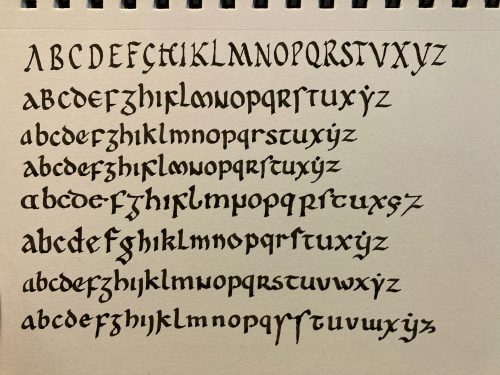 ABCDEFGHIKLMNOPQRSTVXYZ
aBcdefghiklmnopqrſtuxẏz
abcdefghiklmnopqrstuxẏz
abcdefghiklmnopqrſtuxẏz
abcdefghiklmnopqrſtuxyz
abcdefghiklmnopqrſtuxẏz
abcdefghijklmnopqrstuvwxẏz
abcdefghijklmnopqrſtuvwxẏz